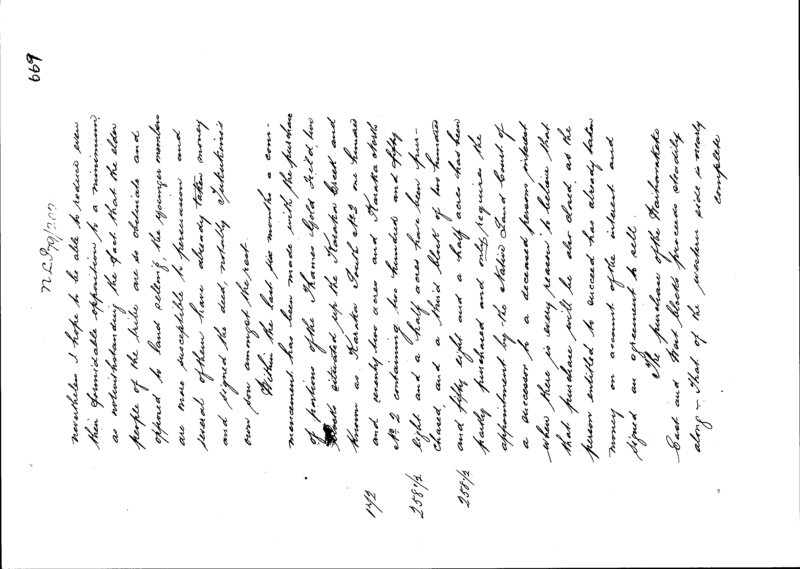 669
N.L.P. 79/202
nevertheless I hope to be able to reduce even
their formidable opposition to a minimum,
as notwithstanding the fact that the elder
people of the tribe are so obstinate and
opposed to land selling, the younger members
are more susceptible to persuasion and
several of them have already taken money
and signed the deed, notably
own son amongst the rest.
Within the last six months a com-
mencement has been made with the purchase
of portions of the Thames Gold Field two
situated up the Karaka Creek and
known as Karaka South No 2 one hundred
and seventy two acres and Karaka North
172
No 2 containing two hundred and fifty
eight and a half acres have been pur-
258 1/2
chased, and a third block of two hundred
and fifty eight and a half acres has been
258 1/2
partly purchased and only requires the
appointment by the Native Land Court of
a successor to a deceased persons interest
when there is every reason to believe that
that purchase will be also closed as the
person entitled to succeed has already taken
money on account of the interest and
signed an agreement to sell.
The purchase of the
East and West blocks proceeds steadily
along - That of the western side is nearly
complete